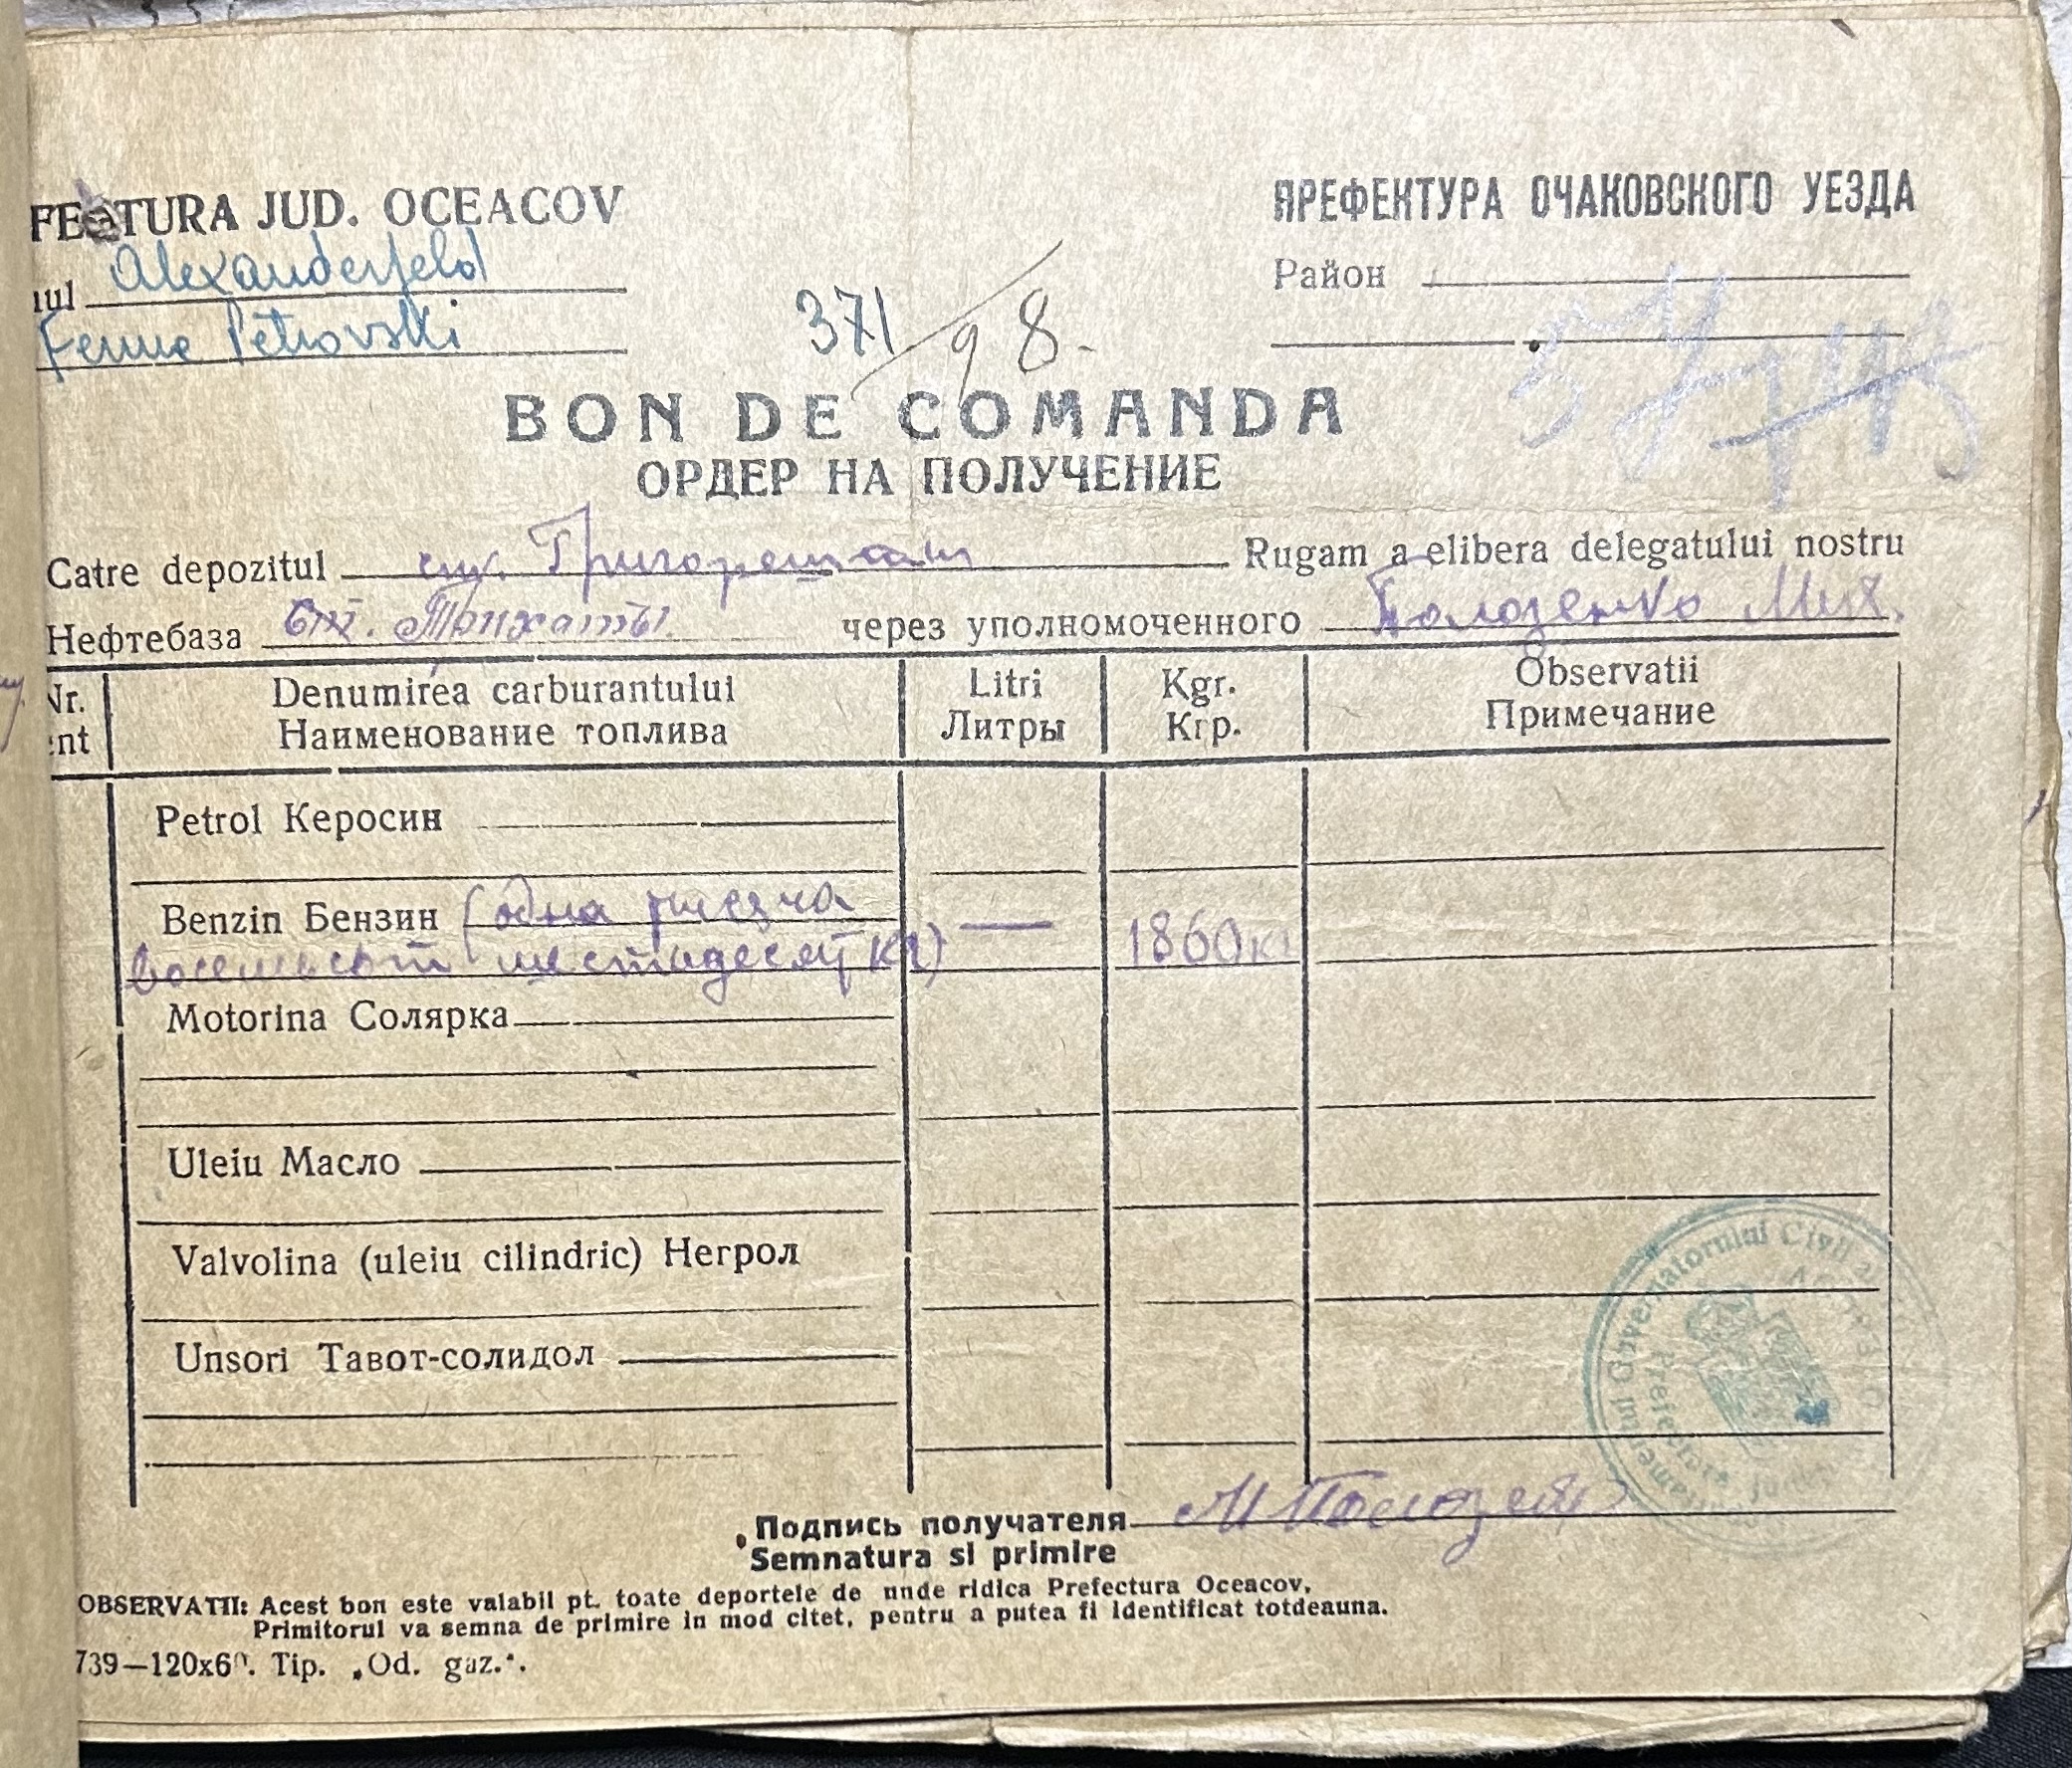 FECTURA JUD. OCEACOV
ПРЕФЕКТУРА ОЧАКОВСКОГО УЕЗДА
Alexanderfeld
Район
Ferme Petrovski
371/98.
BON DE COMANDA
ОРДЕР НА ПОЛУЧЕНИЕ
Catre depozitul Rugam a elibera delegatului nostru
Нефтебаза ст. через уполномоченного Полозенко Мих.
Nr. Denumirea carburantului Litri Kgr. Observatii
Наименование топлива Литры Кгр. Примечание
Petrol Керосин
Benzin Бензин (одна тысяча — 1860 кг
восемьсот шестьдесят кг)
Motorina Солярка
Uleiu Масло
Valvolina (uleiu cilindric) Негрол
Unsori Тавот-солидол
Guvernatorului Civil
Подпись получателя М Полозен
Semnatura si primire
OBSERVATII: Acest bon este valabil pt. toate deportele de unde ridica Prefectura Oceacov.
Primitorul va semna de primire in mod citet, pentru a putea fi identificat totdeauna.
739—120x60. Tip. „Od. gaz.".